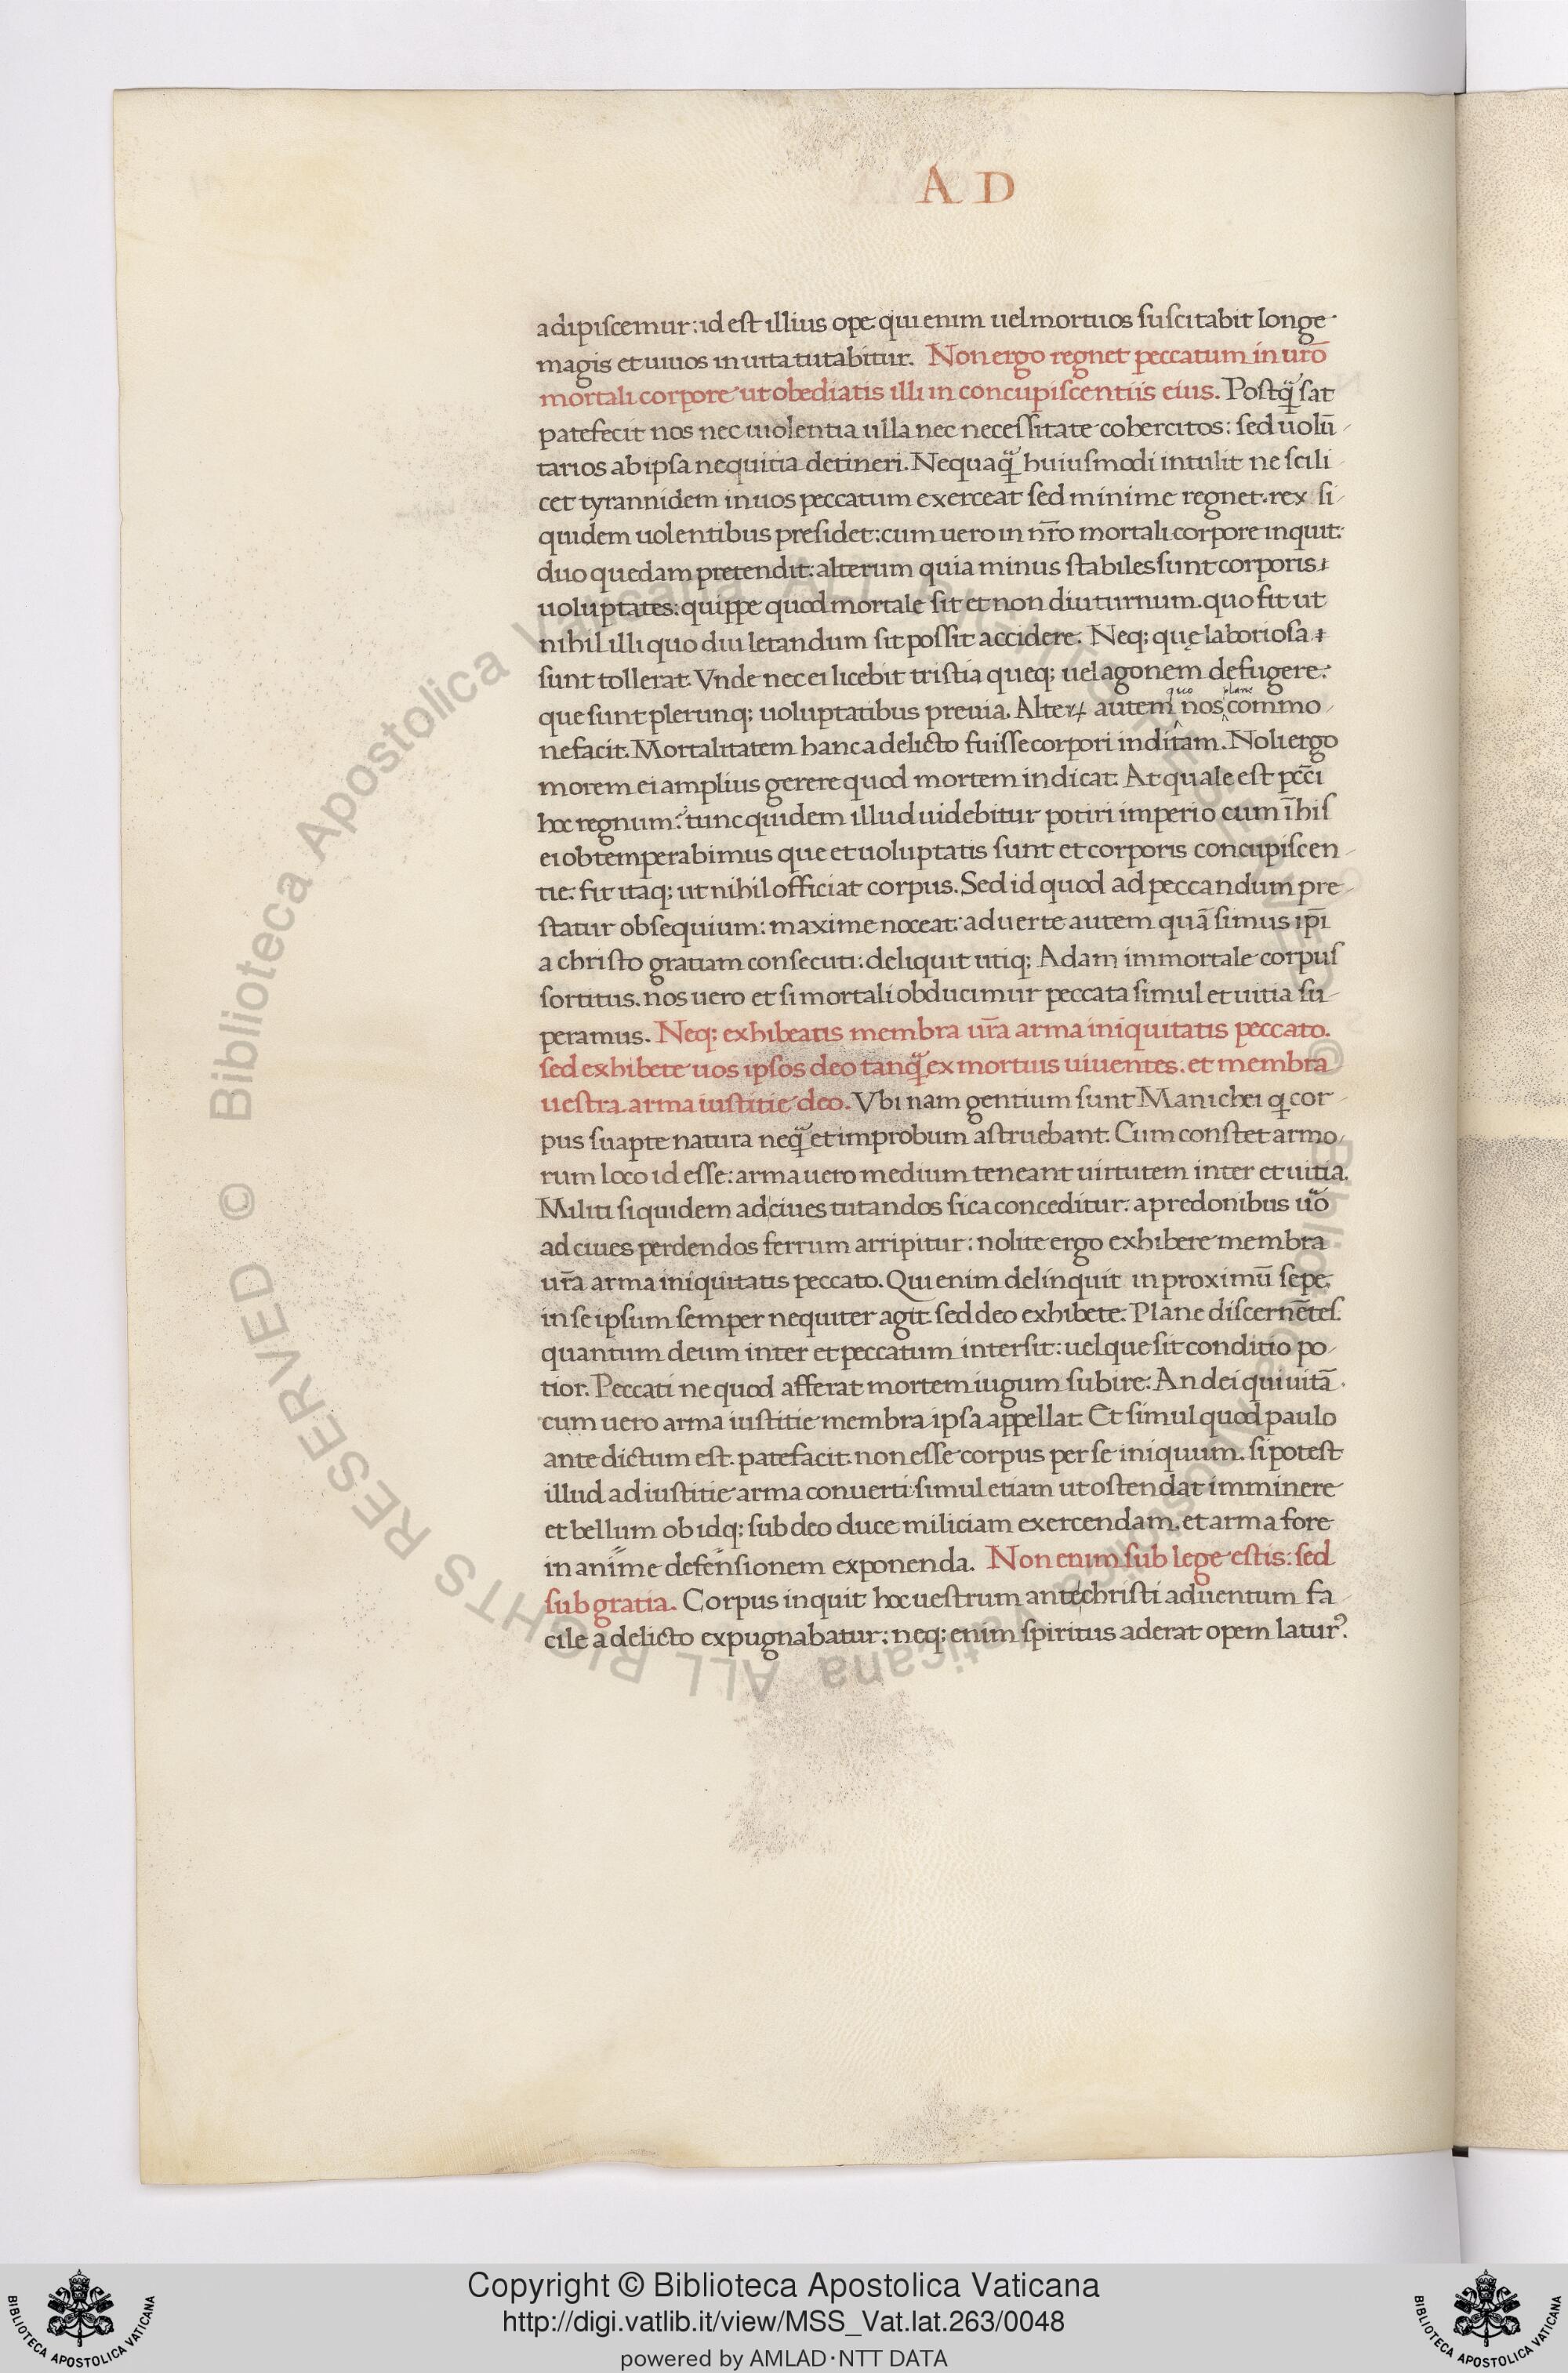 A D
adipiscemur: id est illius ope: qui enim uel mortuos suscitabit longe
magis et uiuos in uita tutabitur. Non ergo regnet peccatum in ur̄o
mortali corpore ut obediatis illi in concupiscentiis eius. Postq̃ sat
patefecit nos nec uiolentia ulla nec necessitate cohercitos: sed uolū
tarios ab ipsa nequitia detineri. Nequaq̃ huiusmodi intulit ne scili
cet tyrannidem in uos peccatum exerceat sed minime regnet. rex si
quidem uolentibus presidet: cum uero in nr̄o mortali corpore inquit:
duo quedam pretendit: alterum quia minus stabiles sunt corporis
uoluptates: quippe quod mortale sit et non diuturnum. quo fit ut
nihil illi quo diu letandum sit possit accidere. Neq; quę laboriosa
sunt tollerat. Vnde nec ei licebit tristia queq; uel agonem defugere:
quo plane
que sunt plerunq; uoluptatibus preuia. Alteꝝ autem nos commo
nefacit. Mortalitatem hanc a delicto fuisse corpori inditam. Noli ergo
morem ei amplius gerere quod mortem indicat. At quale est pcc̄i
hoc regnum: tunc quidem illud uidebitur potiri imperio cum ī his
ei obtemperabimus que et uoluptatis sunt et corporis concupiscen
tie: fit itaq; ut nihil officiat corpus. Sed id quod ad peccandum pre
statur obsequium: maxime noceat: aduerte autem quā simus ip̄i
a christo gratiam consecuti: deliquit utiq; Adam immortale corpus
sortitus. nos uero et si mortali obducimur peccata simul et uitia su
peramus. Neq; exhibeatis membra ur̄a arma iniquitatis peccato.
sed exhibete uos ipsos deo tanq̃ ex mortuis uiuentes. et membra
uestra arma iustitie deo. Vbi nam gentium sunt Manichei q cor
pus suapte natura neq̃ et improbum astruebant. Cum constet armo
rum loco id esse: arma uero medium teneant uirtutem inter et uitia.
Militi siquidem ad ciues tutandos sica conceditur: a predonibus uo
ad ciues perdendos ferrum arripitur: nolite ergo exhibere membra
ur̄a arma iniquitatis peccato. Qui enim delinquit in proximū sepe.
in se ipsum semper nequiter agit. sed deo exhibete: Plane discernētes
quantum deum inter et peccatum intersit: uel que sit conditio po
tior. Peccati ne quod afferat mortem iugum subire: An dei qui uitā.
cum uero arma iustitie membra ipsa appellat. Et simul quod paulo
ante dictum est. patefacit. non esse corpus per se iniquum. si potest
illud ad iustitie arma conuerti simul etiam ut ostendat imminere
et bellum ob idq; sub deo duce miliciam exercendam. et arma fore
in anime defensionem exponenda. Non enim sub lege estis: sed
sub gratia. Corpus inquit hoc uestrum ante christi aduentum fa
cile a delicto expugnabatur: neq; enim spiritus aderat opem laturꝰ.
© Biblioteca Apostolica Vaticana ALL RIGHTS RESERVED © Biblioteca Apostolica Vaticana ALL RIGHTS RESERVED
Copyright © Biblioteca Apostolica Vaticana
http://digi.vatlib.it/view/MSS_Vat.lat.263/0048
powered by AMLAD·NTT DATA
BIBLIOTECA APOSTOLICA VATICANA
BIBLIOTECA APOSTOLICA VATICANA